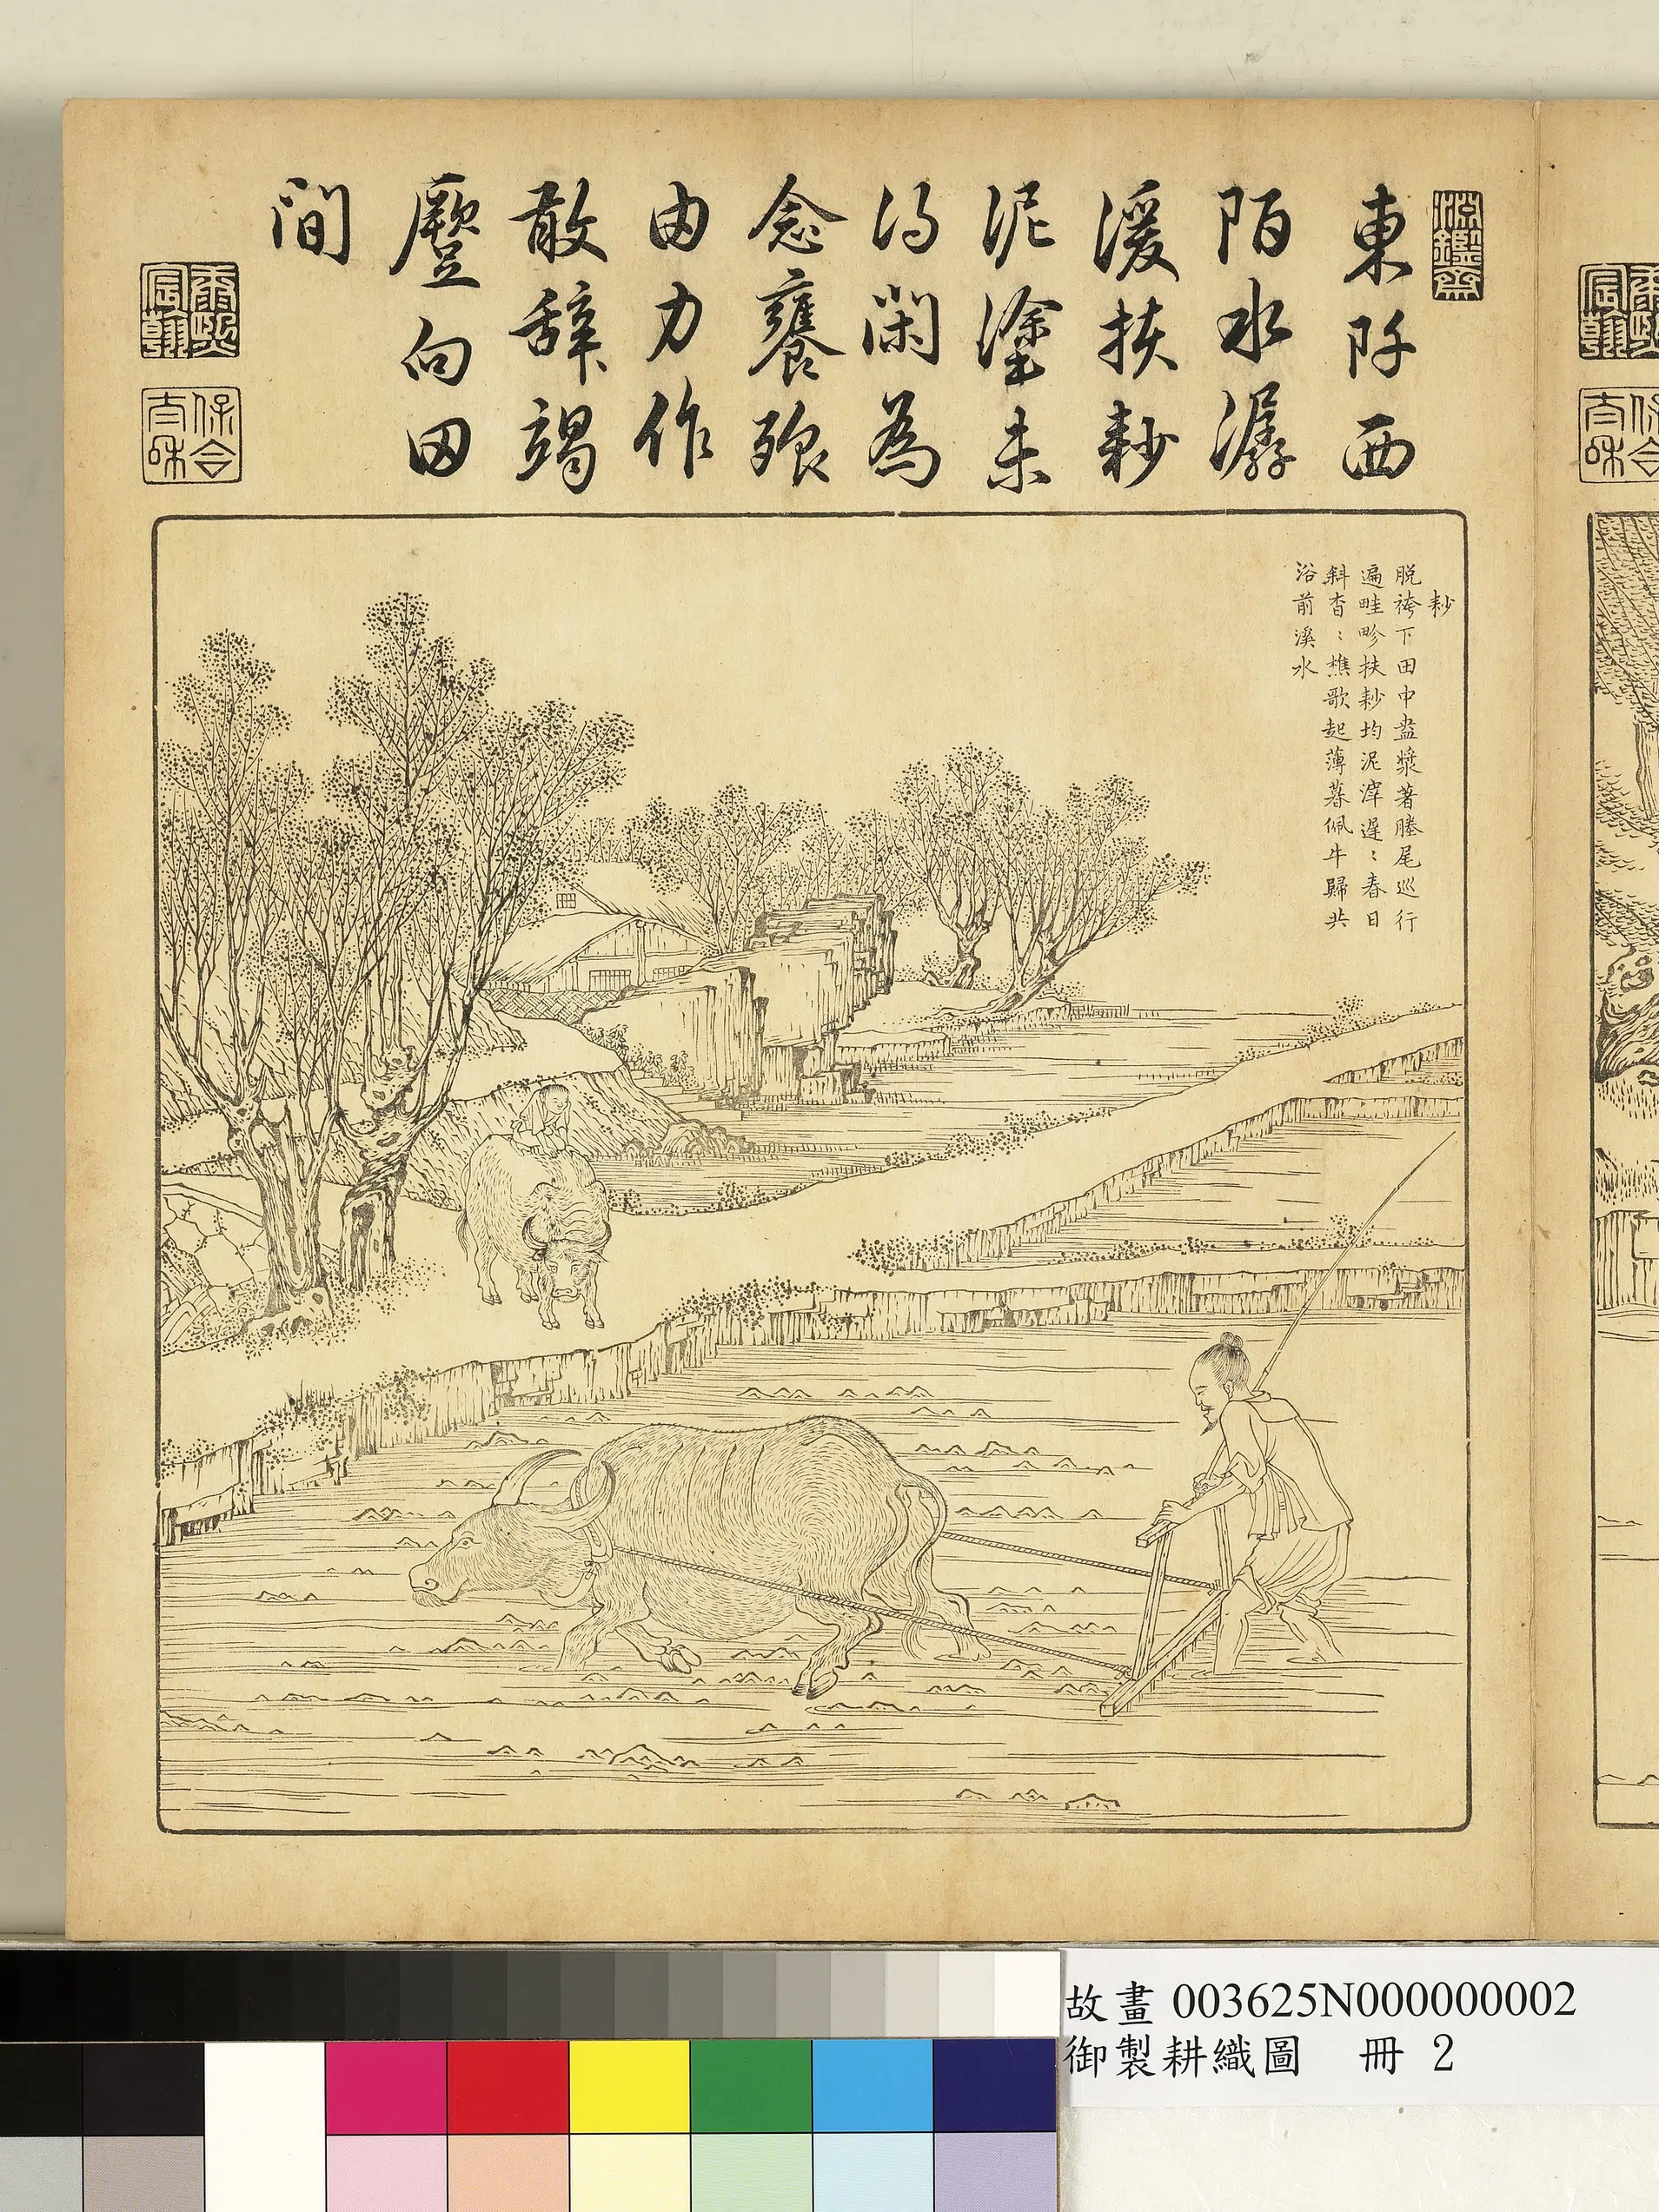 淵鑑齋
東阡西
陌水潺
湲扶耖
泥塗未
得閑為
念饔飱
由力作
敢辭竭
蹷向田
間
康熙
宸翰
保合
太和
耖
脫袴下田中盎漿著塍尾巡行
遍畦畛扶耖均泥滓遲〻春日
斜杳〻樵歌起薄暮佩牛歸共
浴前溪水
故畫 003625N000000002
御製耕織圖 冊 2